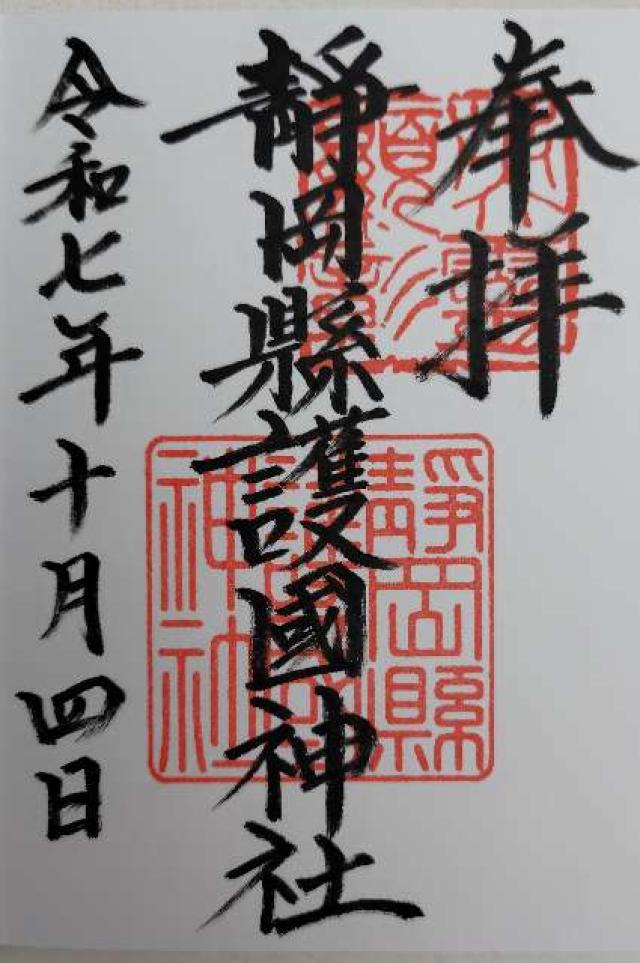 奉拝
靜岡縣護國神社
令和七年十月四日
靜岡縣
護國
神社